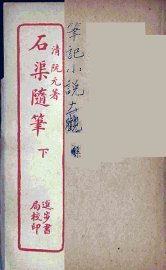 筆記小說大觀
清 阮元著
石渠隨筆 下
進步書
局校印